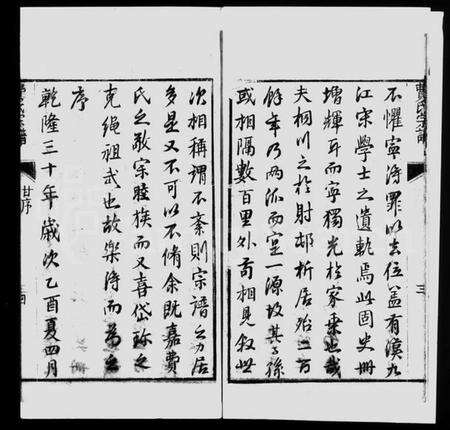 不懼寧得罪以去位蓋有漢九
江宋學士之遺乾焉此固史冊
增輝耳而寧獨光於家乘也哉
夫桐川之於射邨析居殆二百
餘年乃兩派而寔一源故其子孫
或相隔數百里外苟相見叙世
次相稱謂不紊則宗譜之功居
多是又不可以不脩余既嘉費
氏之敬宗睦族而又喜岱珎之
克繩祖武也故樂得而為之
序
乾隆三十年歲次乙酉夏四月
甘序
三